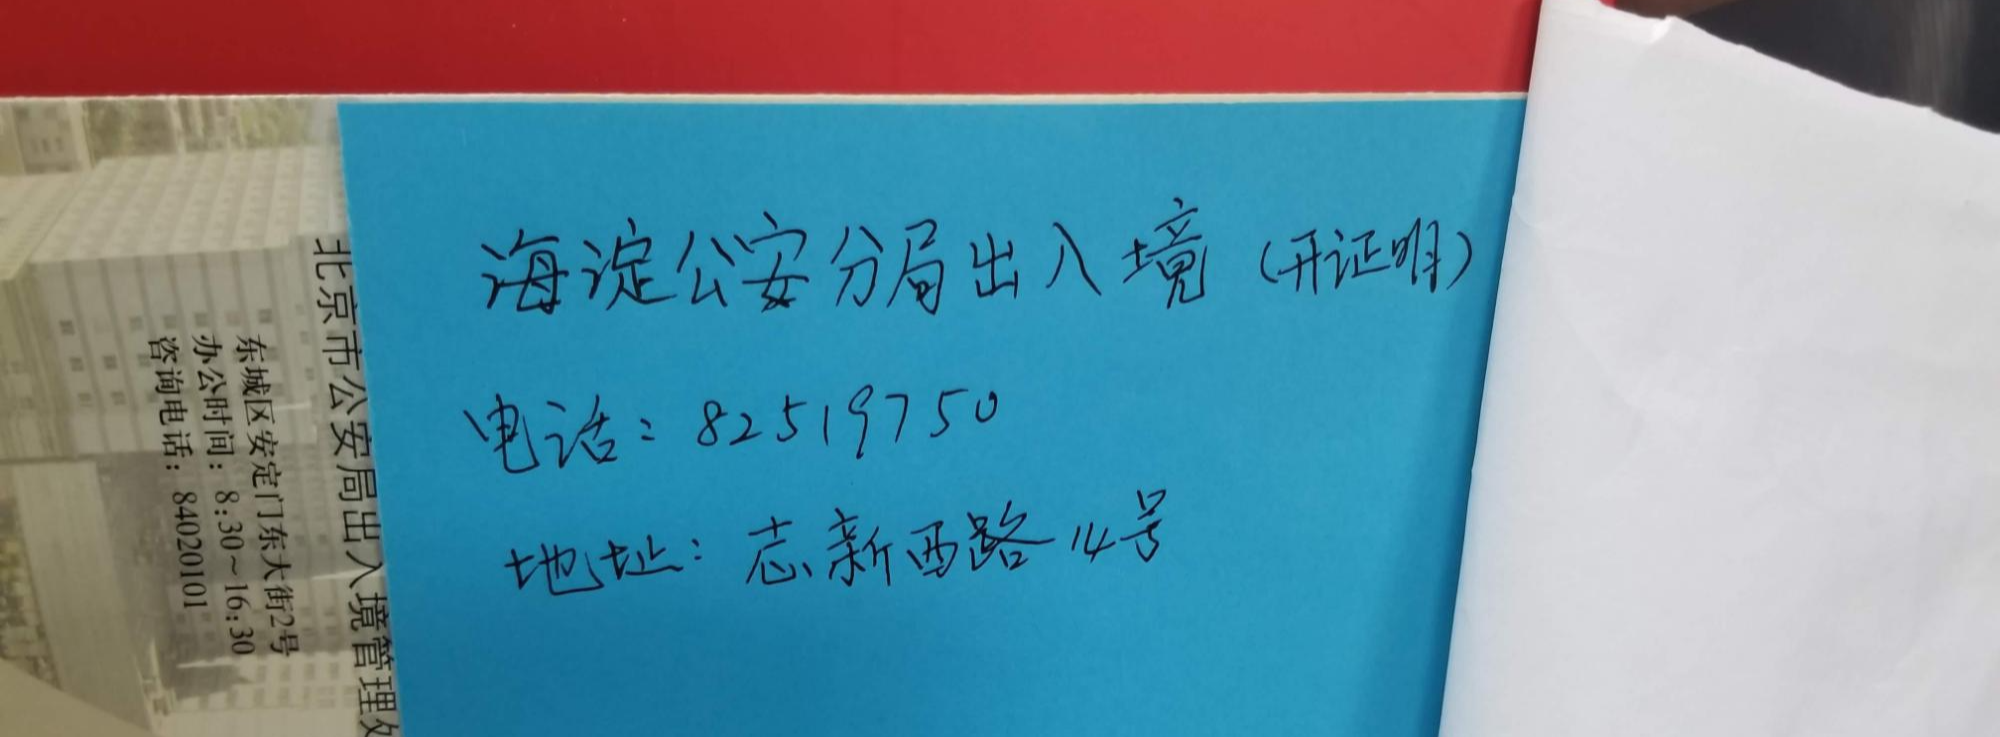 海淀公安分局出入境（开证明）
电话：82519750
地址：志新西路14号
北京市公安局出入境管理处
东城区安定门东大街2号
办公时间：8:30~16:30
咨询电话：84020101